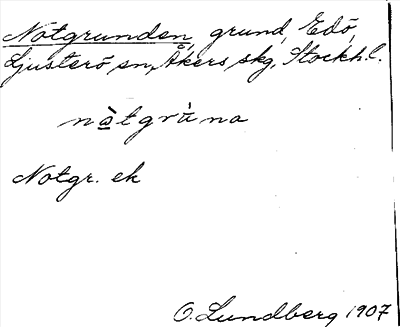 Notgrunden, grund, Edö,
Ljusterö sn, Åkers skg, Stockh. l.
nàtgrὰna
Notgr. ek
O. Lundberg 1907